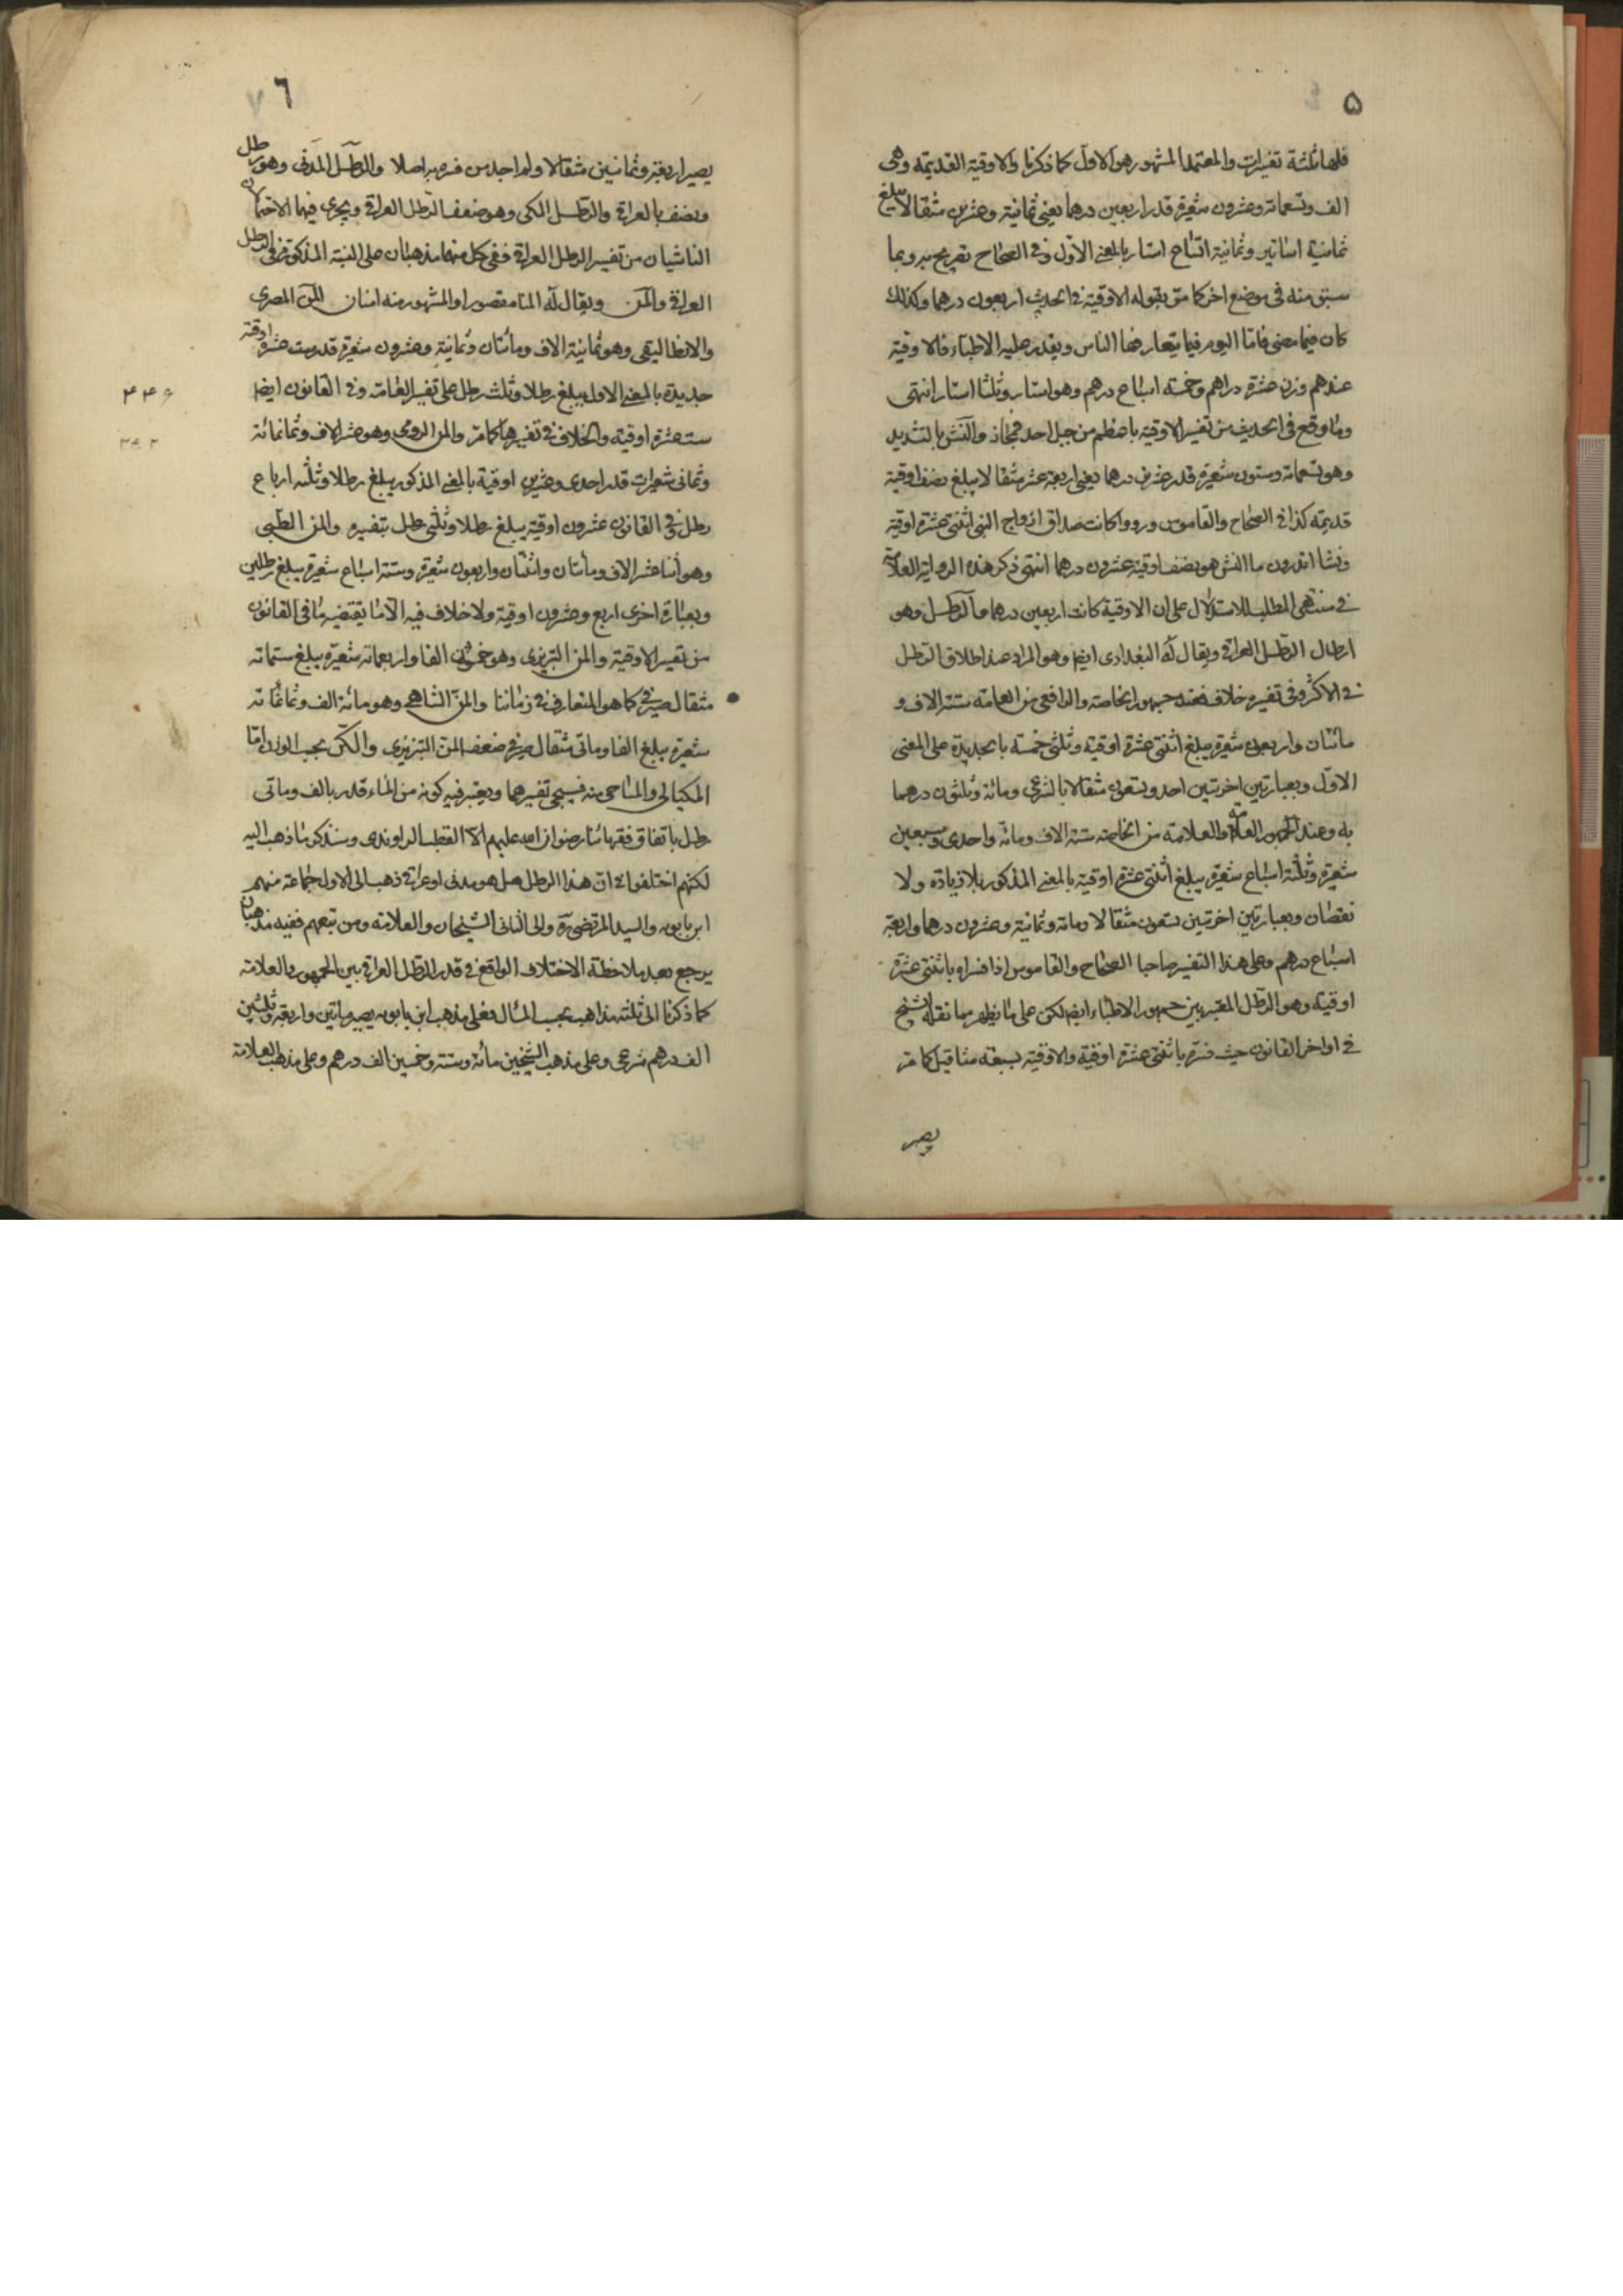 ۵
فلها ثلثة تفسيرات والمعتمد المشهور هو الاول كما ذكرنا والاوقية القديمة وهى
الف وتسعمائة وعشرون شعيرة قدر اربعين درهما يعنى ثمانية وعشرين مثقالا يبلغ
ثمانية اساتير وثمانية اتساع استار بالمعنى الاول وفى الصحاح تصريح به وبما
سبق منه فى موضع اخر كما مر بقوله الاوقية فى الحديث اربعون درهما وكذلك
كان فيما مضى فاما اليوم فيما يتعارفها الناس ويقدر عليه الاطباء فالاوقية
عندهم وزن عشرة دراهم وخمسة اسباع درهم وهو استار وثلثا استار انتهى
وما وقع فى الحديث من تفسير الاوقية باعظم من جبل احد فمجاز والنش بالتشديد
وهو تسعمائة وستون شعيرة قدر عشرين درهما يعنى اربعة عشر مثقالا يبلغ نصف اوقية
قديمة كذا فى الصحاح والقاموس ورووا كانت صداق ازواج النبى اثنتى عشرة اوقية
ونشا اتدرون ما النش هو نصف اوقية عشرون درهما انتهى ذكر هذه الرواية العلامة
فى منتهى المطلب للاستدلال على ان الاوقية كانت اربعين درهما والرطل وهو
ارطال الرطل العراقى ويقال له البغدادى ايضا وهو المراد عند اطلاق الرطل
فى الاكثر وفى تفسيره خلاف فعند جمهور الخاصة والرافعى من العامة ستة الاف و
مائتان واربعون شعيرة يبلغ اثنتى عشرة اوقية وثلثى خمسة بالجديدة على المعنى
الاول وبعبارتين اخرتين احد وتسعون مثقالا بالشرعى ومائة وثلثون درهما
به وعند الجمهور العامة والعلامة من الخاصة ستة الاف ومائة واحدى وسبعين
شعيرة وثلثة اسباع شعيرة يبلغ اثنتى عشرة اوقية بالمعنى المذكور بلا زيادة ولا
نقصان وبعبارتين اخرتين تسعون مثقالا ومائة وثمانية وعشرون درهما واربعة
اسباع درهم وعلى هذا التفسير صاحبا الصحاح والقاموس اذا فسراه باثنتى عشرة
اوقية وهو الرطل المعتبر بين جمهور الاطباء ايضا لكن على ما يظهر مما نقله الشيخ
فى اواخر القانون حيث فسره باثنتى عشرة اوقية والاوقية بسبعة مثاقيل كما مر
يصير
٦
يصير اربعة وثمانين مثقالا ولم اجد من فسره به اصلا والرطل المدنى وهو رطل
ونصف بالعراقى والرطل المكى وهو ضعف الرطل العراقى ويجرى فيهما الاحتمالان
الناشيان من تفسير الرطل العراقى ففى كل منهما مذهبان على النسبة المذكورة فى الرطل
العراقى والمن ويقال له المنا مقصورا والمشهور منه امنان المن المصرى
والانطاليقى وهو ثمانية الاف ومائتان وثمانية وعشرون شعيرة قدر ست عشرة اوقية
جديدة بالمعنى الاول يبلغ رطلا وثلث رطل على تفسير العامة وفى القانون ايضا
ست عشرة اوقية والخلاف فى تفسيرها كما مر والمن الرومى وهو عشر الاف وثمانمائة
وثمانى شعيرات قدر احدى وعشرين اوقية بالمعنى المذكور يبلغ رطلا وثلثه ارباع
رطل وفى القانون عشرون اوقية يبلغ رطلا وثلثى رطل بتفسيره والمن الطبى
وهو اثنا عشر الاف ومائتان واثنتان واربعون شعيرة وستة اسباع شعيرة يبلغ رطلين
وبعبارة اخرى اربع وعشرون اوقية ولا خلاف فيه الا ما يقتضيه ما فى القانون
من تفسير الاوقية والمن التبريزى وهو خمسون الفا واربعمائة شعيرة يبلغ ستمائة
مثقال صيرفى كما هو المتعارف فى زماننا والمن الشاهى وهو مائة الف وثمانمائة
شعيرة يبلغ الفا ومائتى مثقال صيرفى ضعف المن التبريزى والكر بحسب الوزن اما
المكيالى والمساحى منه فسيجئ تفسيرهما ويعتبر فيه كونه من الماء قدر بالف ومائتى
رطل باتفاق فقهائنا رضوان الله عليهم الا القطب الراوندى وسنذكر ما ذهب اليه
لكنهم اختلفوا فى ان هذا الرطل هل هو مدنى او عراقى ذهب الى الاول جماعة منهم
ابن بابويه والسيد المرتضى ره والى الثانى الشيخان والعلامة ومن تبعهم ففيه مذهبان
يرجع بعد ملاحظة الاختلاف الواقع فى قدر الرطل العراقى بين الجمهور والعلامة
كما ذكرنا الى ثلثة مذاهب بحسب المآل فعلى مذهب ابن بابويه يصير مائتين واربعة وثلثين
الف درهم شرعى وعلى مذهب الشيخين مائة وستة وخمسين الف درهم وعلى مذهب العلامة